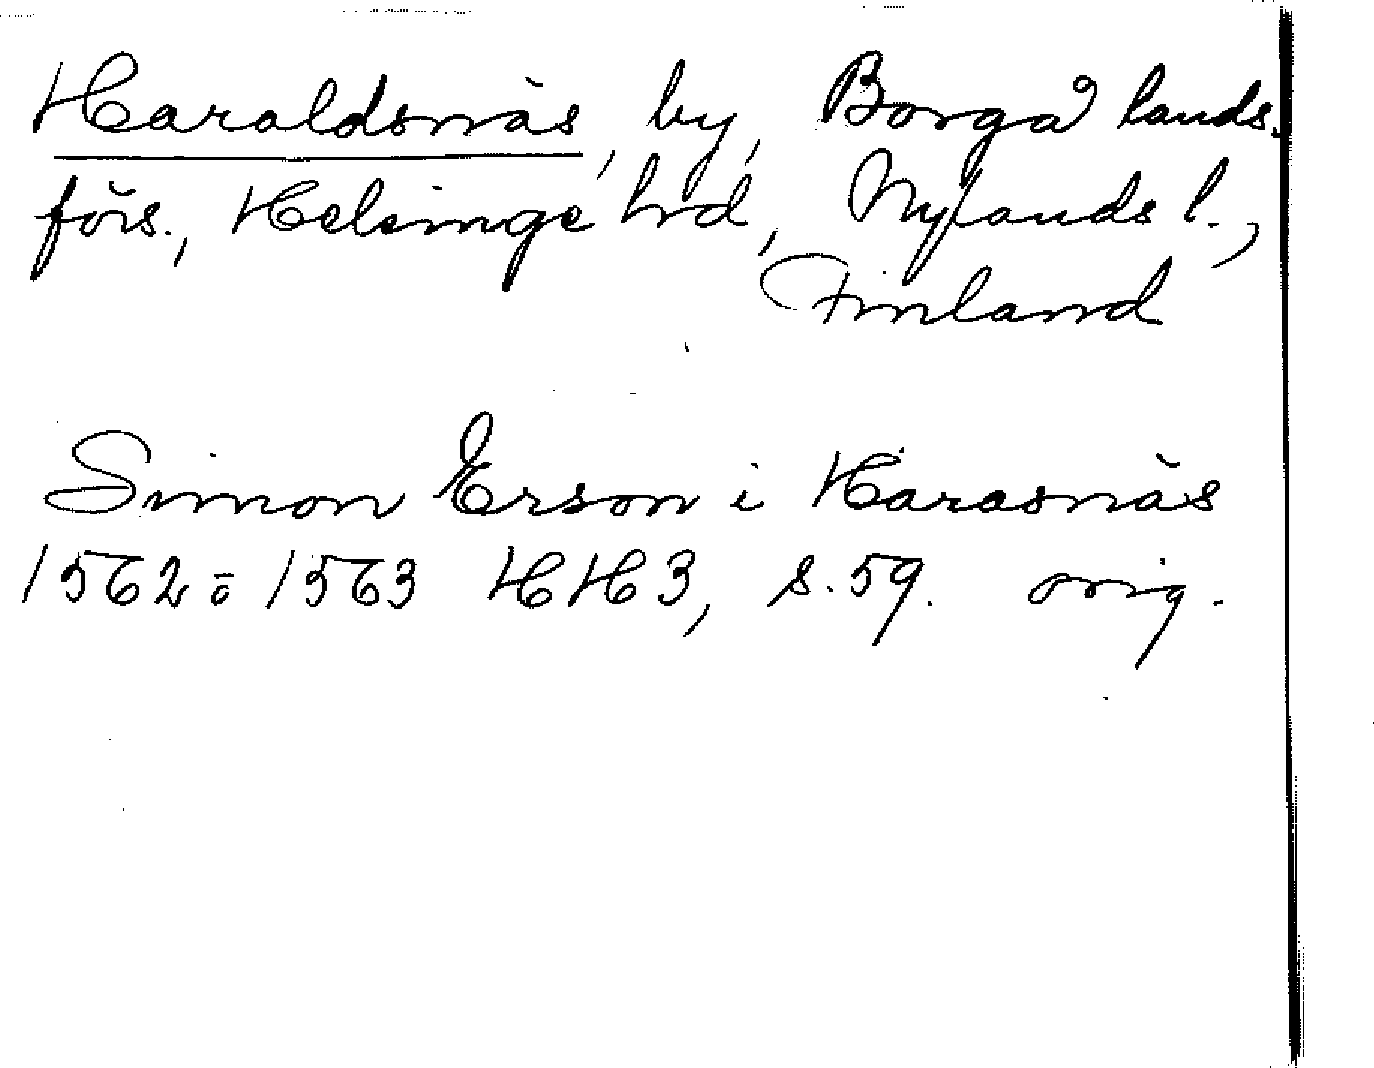 Haraldsnäs, by, Borgå lands-
förs., Helsinge hd, Nylands l.,
Finland
Simon Erson i Harasnäs
1562 ö 1563 HH 3, s. 59. orig.